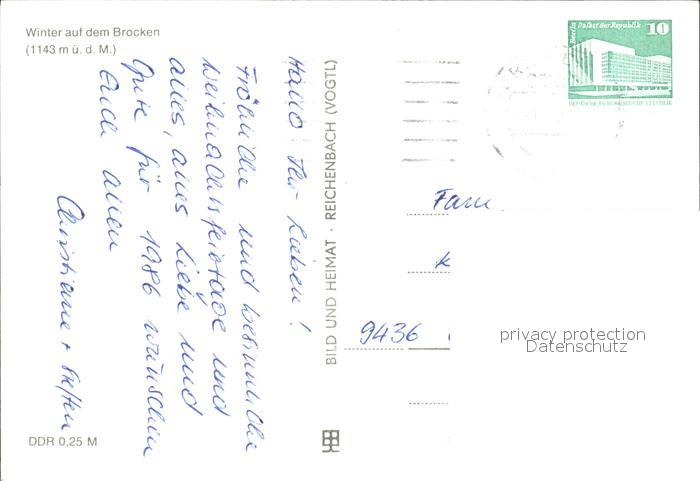 Winter auf dem Brocken
(1143 m ü. d. M.)
Hallo Ihr Lieben!
Fröhliche und besinnliche
Weihnachtsfeiertage und
alles, alles Liebe und
Gute für 1986 wünschen
Euch allen
Christiane + Steffen
DDR 0,25 M
BILD UND HEIMAT · REICHENBACH (VOGTL)
Berlin Palast der Republik 10
DEUTSCHE DEMOKRATISCHE REPUBLIK
Fam
K
9436
privacy protection
Datenschutz